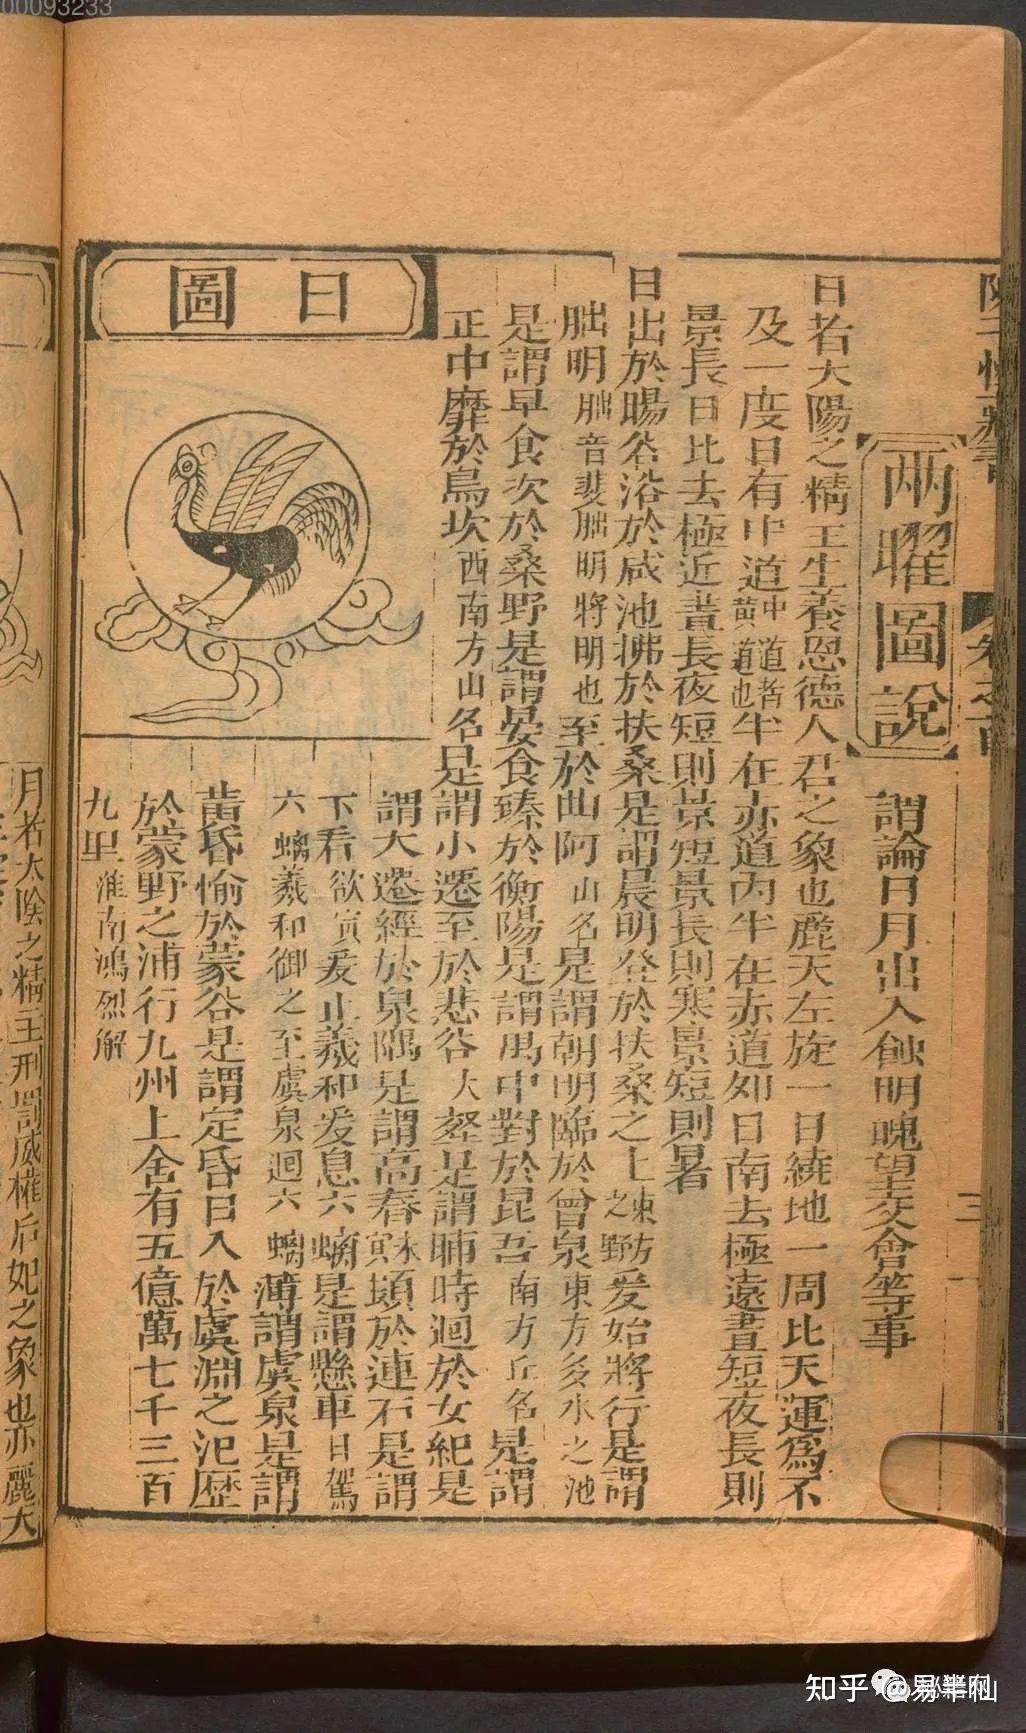 00093233
兩曜圖說 謂論日月出入蝕明魄望交會等事
日者太陽之精王生養恩德人君之象也麗天左旋一日繞地一周比天運爲不
及一度日有中道中道者黃道也半在赤道內半在赤道如日南去極遠晝短夜長則
景長日比去極近晝長夜短則景短景長則寒景短則暑
日出於暘谷浴於咸池拂於扶桑是謂晨明登於扶桑之上東方之野爰始將行是謂
朏明朏音斐朏明將明也至於曲阿山名是謂朝明臨於曾泉東方多水之池
是謂早食次於桑野是謂晏食臻於衡陽是謂禺中對於昆吾南方丘名是謂
日圖
正中靡於鳥坎西南方山名是謂小遷至於悲谷大壑是謂晡時迴於女紀是
謂大遷經於泉隅是謂高舂未寅頃於連石是謂
下舂欲寅爰止羲和爰息六螭是謂懸車日駕
六螭羲和御之至虞泉迴六螭薄謂虞泉是謂
黃昏愉於蒙谷是謂定昏日入於虞淵之汜歷
於蒙野之浦行九州上舍有五億萬七千三百
九里淮南鴻烈解
月者太陰之精王刑罰威權后妃之象也亦麗天
知乎